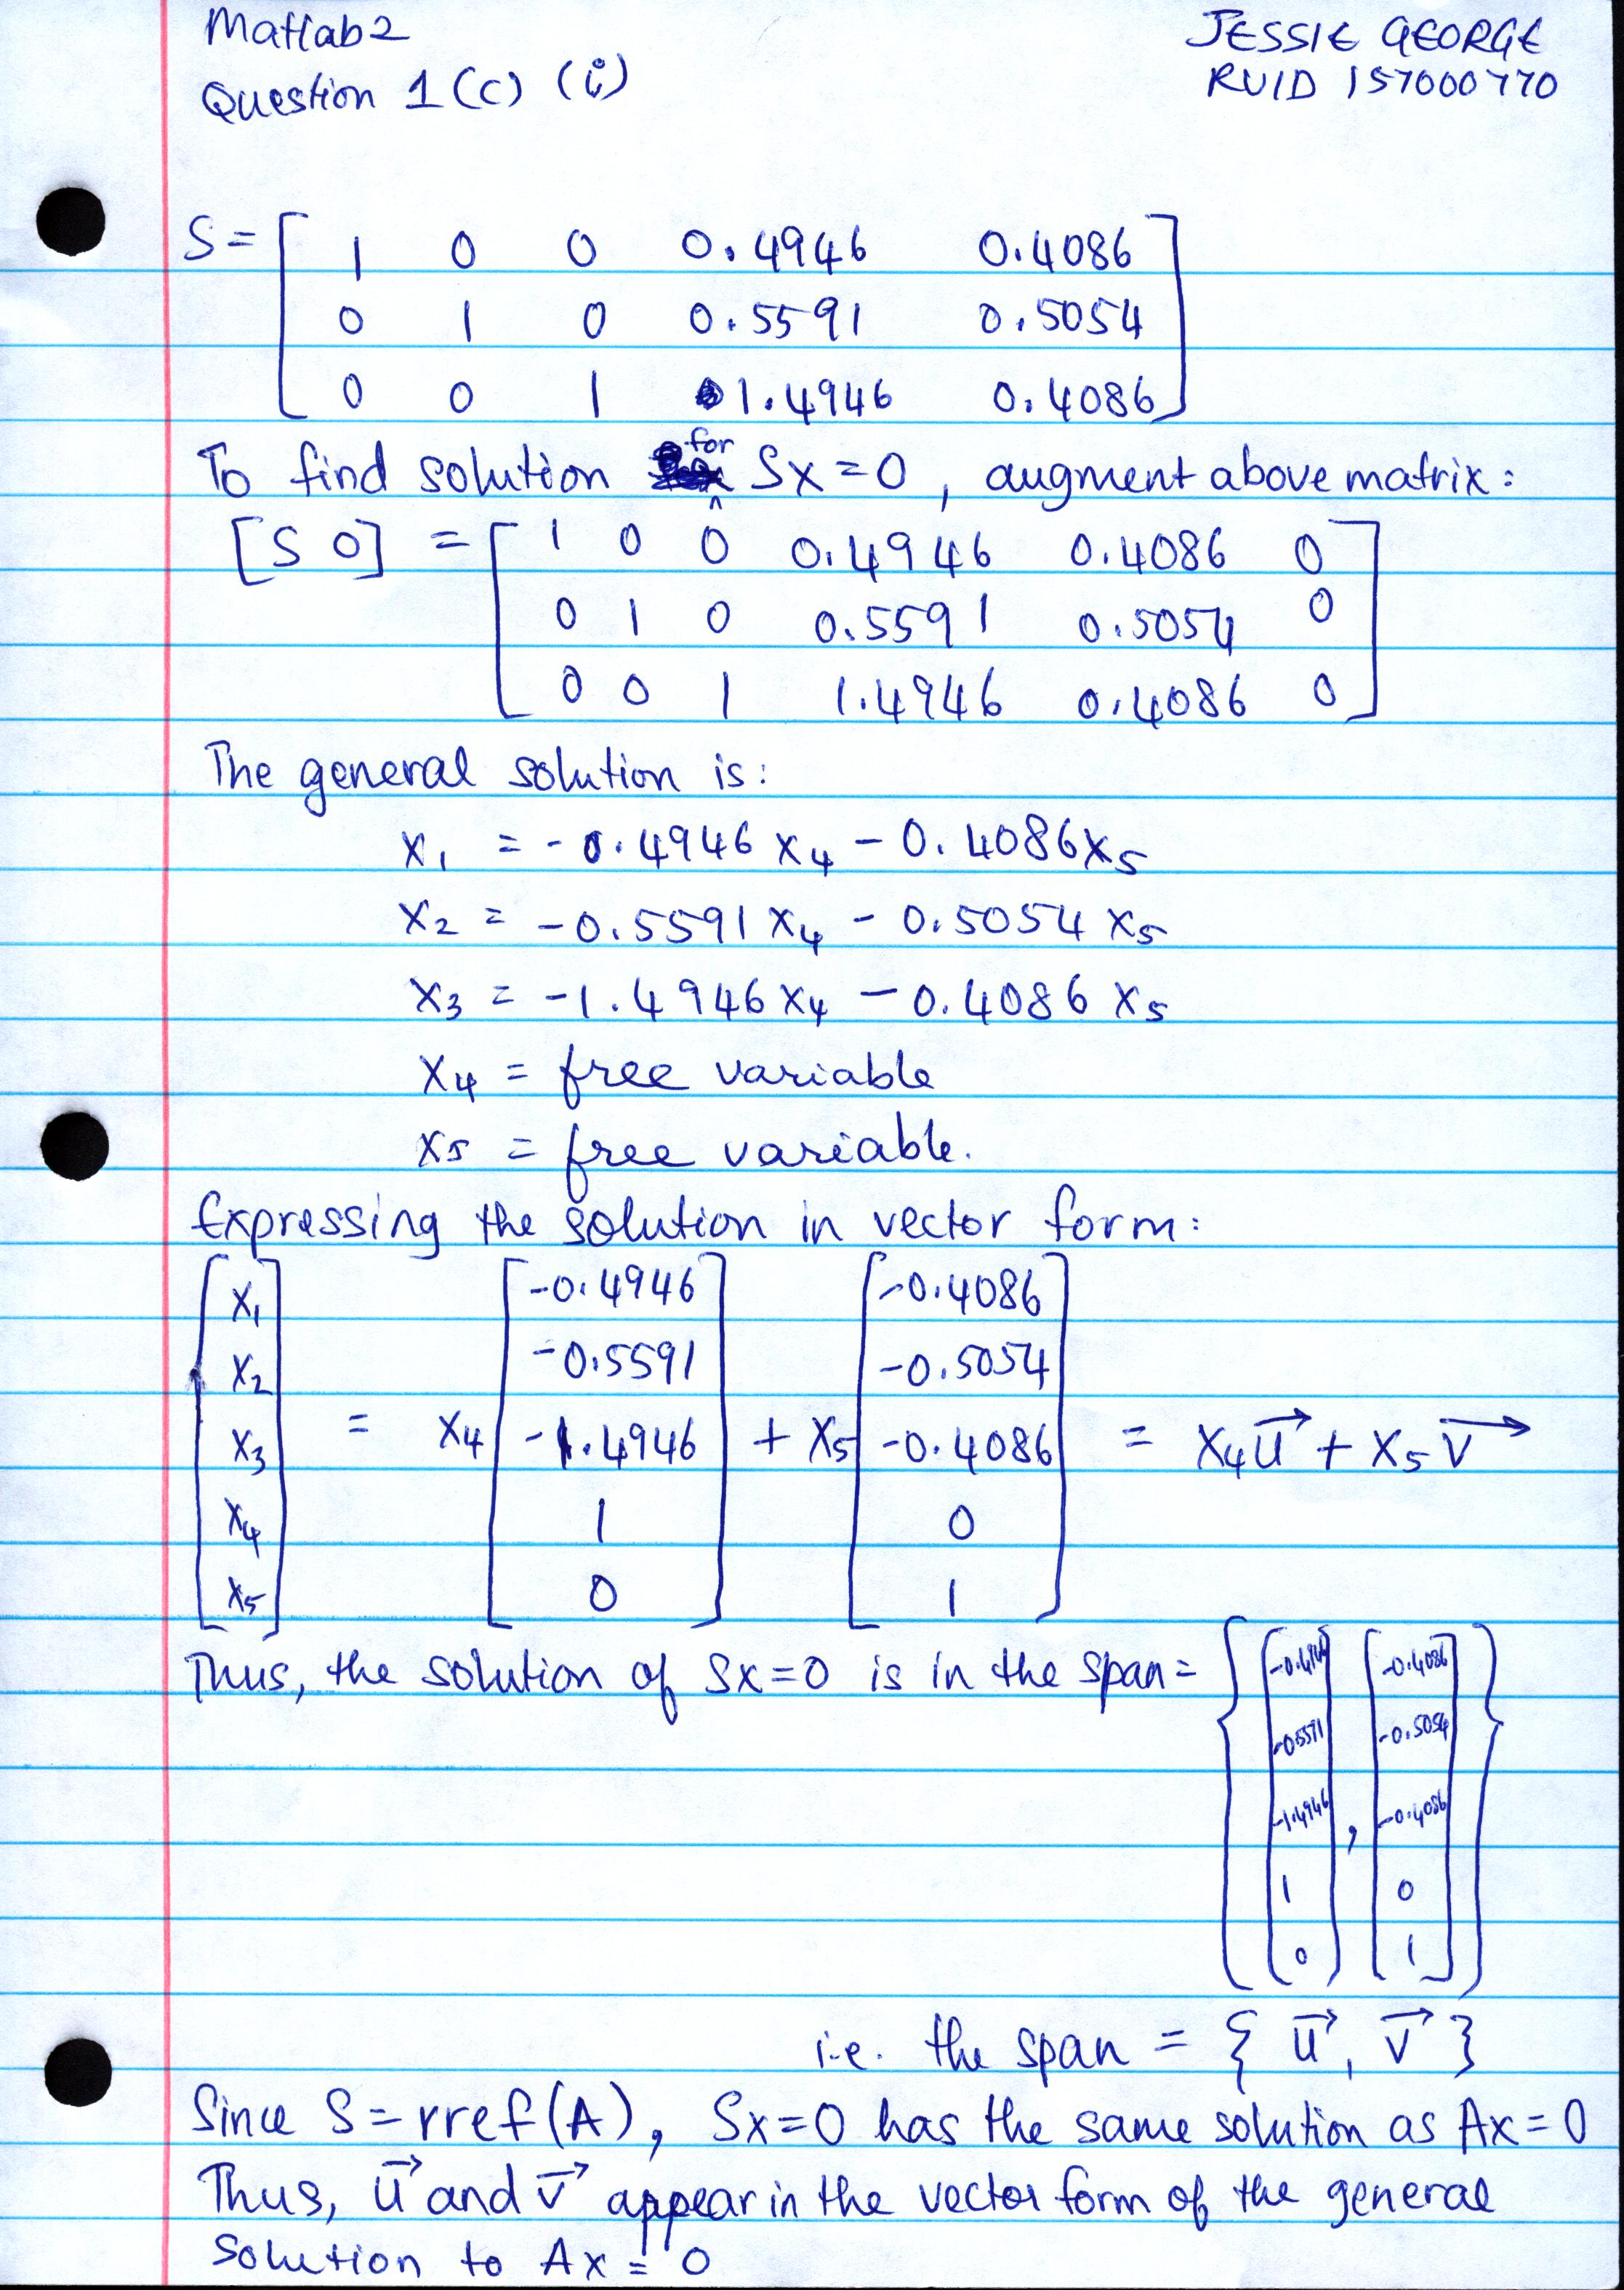 Matlab2
JESSIE GEORGE
Question 1 (c) (i)
RUID 157000770
S = [ 1 0 0 0.4946 0.4086
0 1 0 0.5591 0.5054
0 0 1 1.4946 0.4086 ]
To find solution for Sx=0, augment above matrix:
[S 0] = [ 1 0 0 0.4946 0.4086 0
0 1 0 0.5591 0.5054 0
0 0 1 1.4946 0.4086 0 ]
The general solution is:
x₁ = -0.4946 x₄ - 0.4086x₅
x₂ = -0.5591 x₄ - 0.5054 x₅
x₃ = -1.4946 x₄ - 0.4086 x₅
x₄ = free variable
x₅ = free variable.
Expressing the solution in vector form:
[ x₁ [ -0.4946 [ -0.4086
x₂ -0.5591 -0.5054
x₃ = x₄ -1.4946 + x₅ -0.4086 = x₄u⃗ + x₅v⃗
x₄ 1 0
x₅ ] 0 ] 1 ]
Thus, the solution of Sx=0 is in the span = { [ -0.4946 [ -0.4086
-0.5591 -0.5054
-1.4946 , -0.4086
1 0
0 ] 1 ] }
i.e. the span = { u⃗, v⃗ }
Since S = rref(A), Sx=0 has the same solution as Ax=0
Thus, u⃗ and v⃗ appear in the vector form of the general
solution to Ax = 0